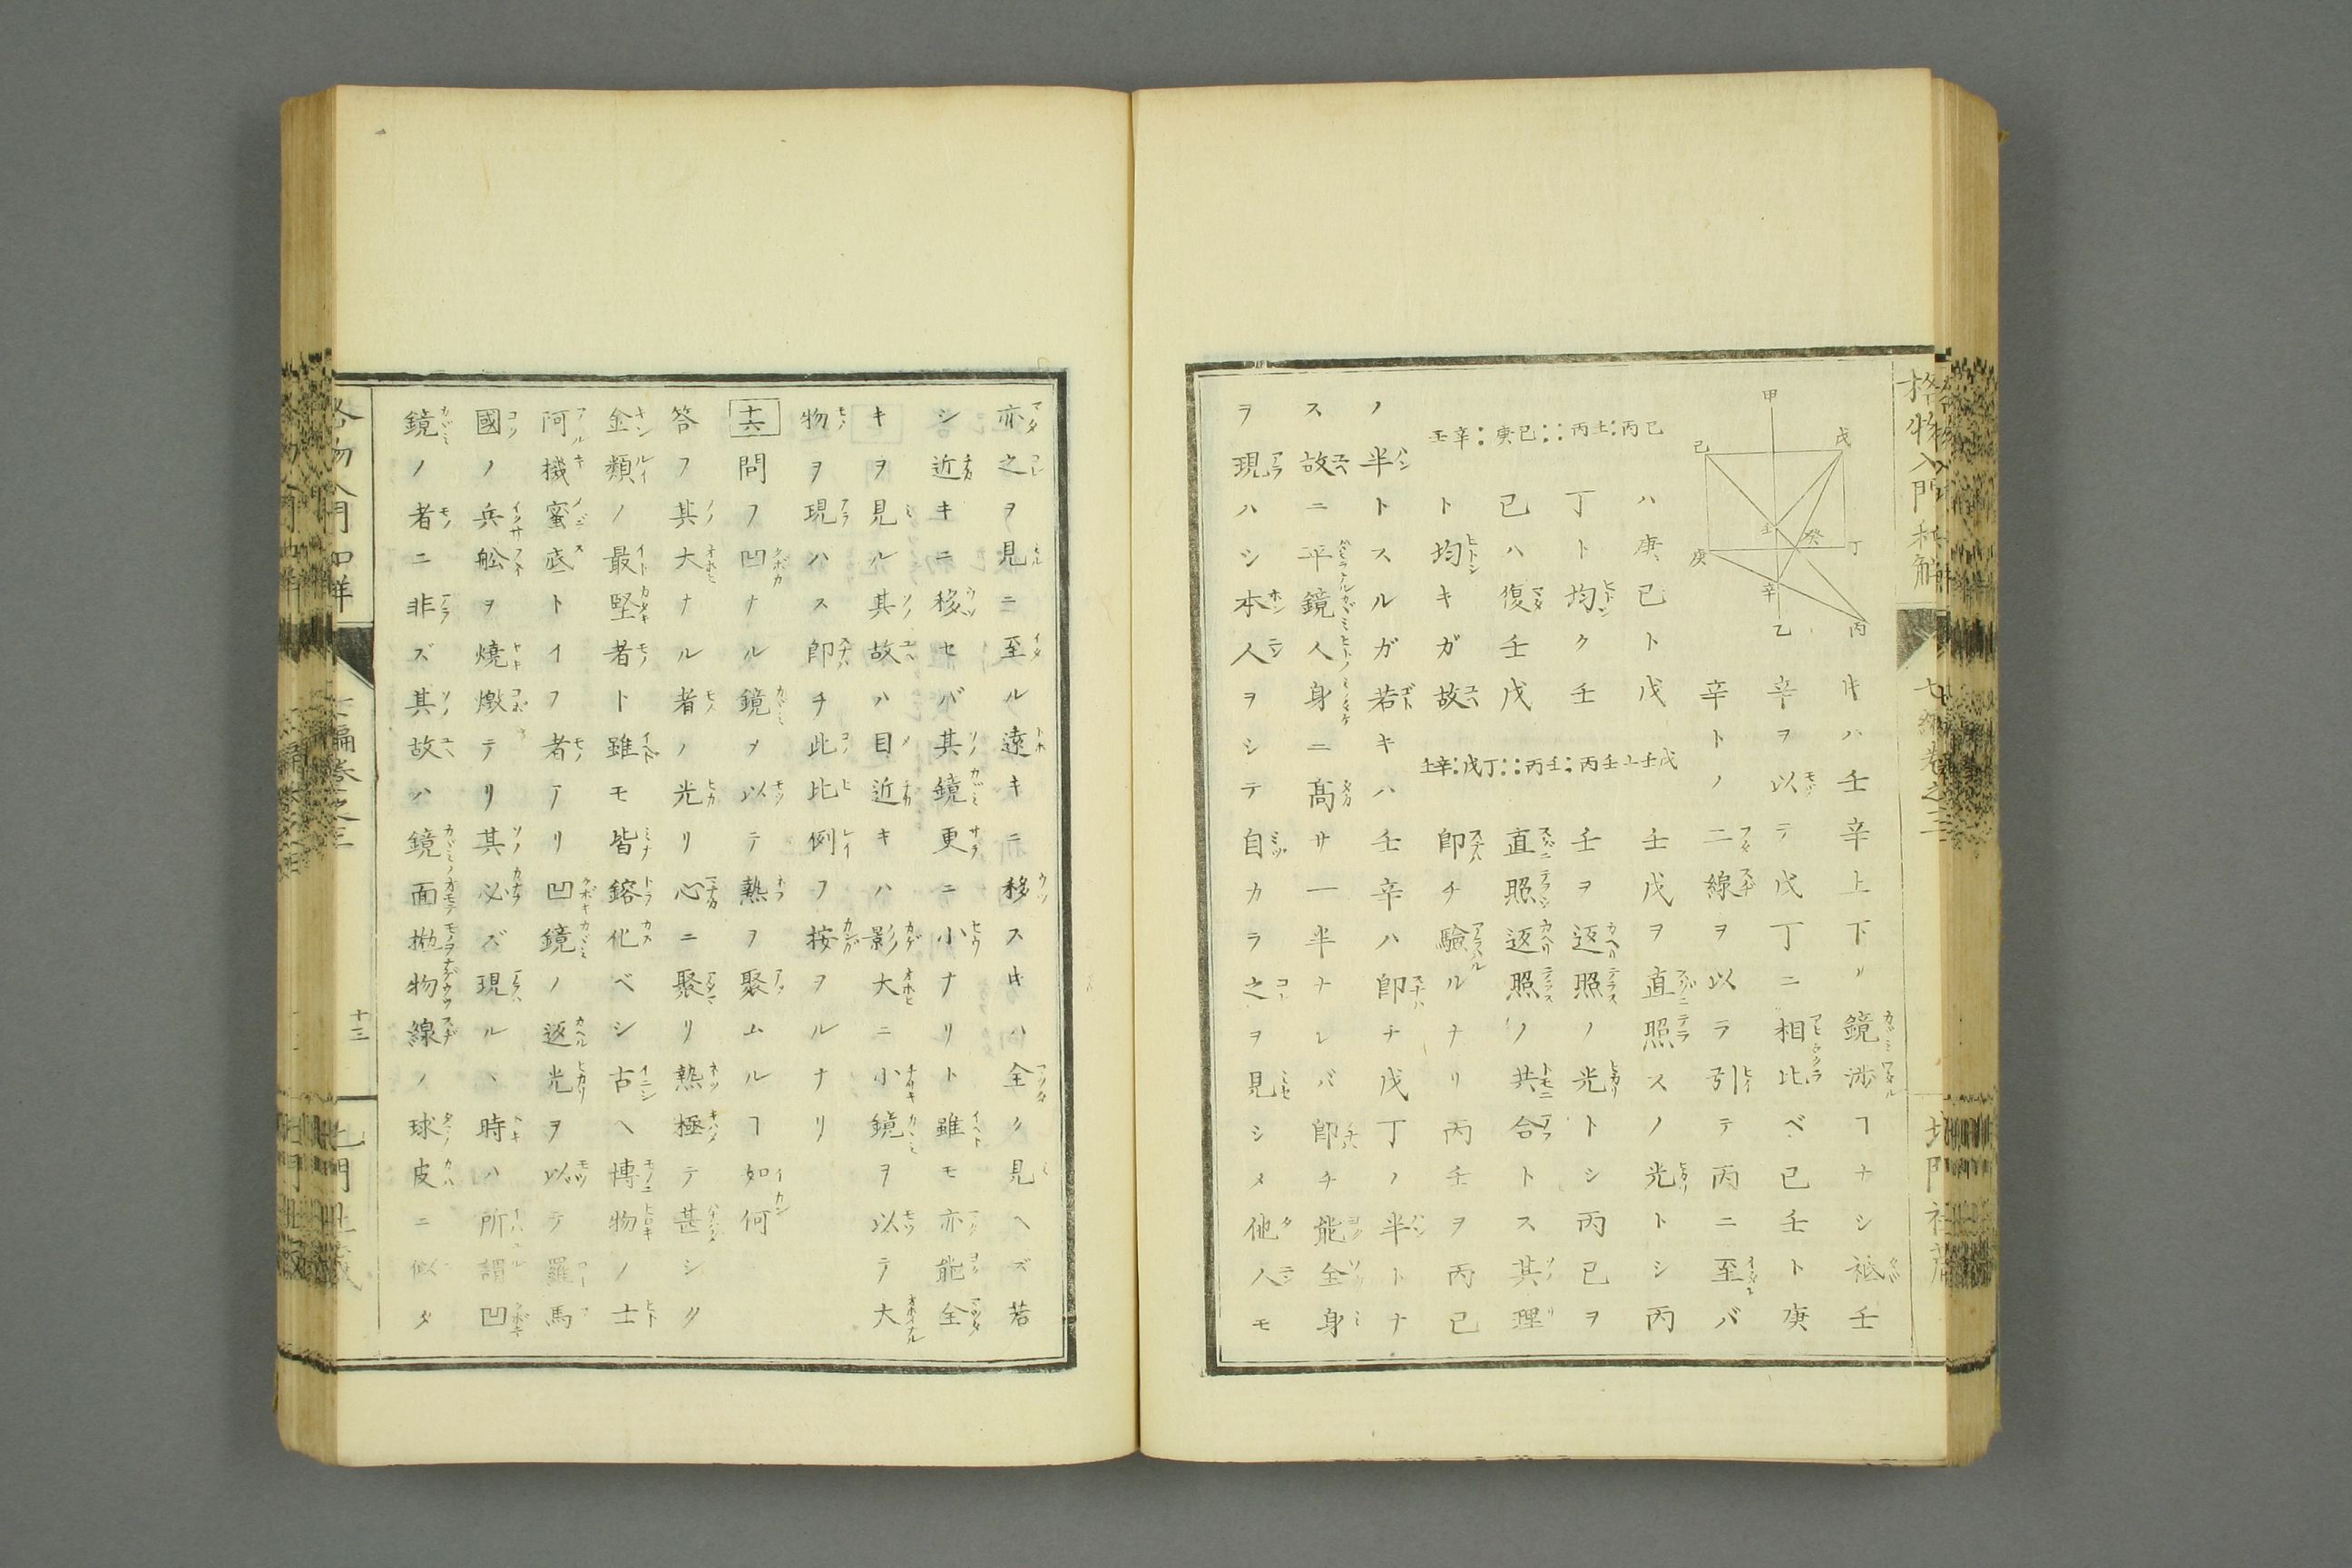 格物入門和解
七編巻之三
北門社蔵
甲
戊
己
壬
癸
丁
庚
辛
乙
丙
𪜈ハ壬辛上下ノ鏡渉ヿナシ祗壬
辛ヲ以テ戊丁ニ相比ベ己壬ト庚
辛トノ二線ヲ以テ引テ丙ニ至バ
壬辛:庚己::丙壬:丙己
ハ庚己ト戊壬戊ヲ直照スノ光トシ丙
丁ト均ク壬壬ヲ返照ノ光トシ丙己ヲ
己ハ復壬戊直照返照ノ共合トス其理
ト均キガ故即チ驗ルナリ丙壬ヲ丙己
壬辛:戊丁::丙壬:丙壬上壬戊
ノ半トスルガ若キハ壬辛ハ即チ戊丁ノ半トナ
ス故ニ平鏡人身ニ高サ一半ナレバ即チ能全身
ヲ現ハシ本人ヲシテ自カラ之ヲ見シメ他人モ
亦之ヲ見ニ至ル遠キニ移ス𪜈ハ全ク見ヘズ若
シ近キニ移セバ其鏡更ニ小ナリト雖モ亦能全
キヲ見ル其故ハ目近キハ影大ニ小鏡ヲ以テ大
物ヲ現ハス即チ此比例フ按ヲルナリ
十六 問フ凹ナル鏡ヲ以テ熱ヲ聚ムルヿ如何
答フ其大ナル者ノ光リ心ニ聚リ熱極テ甚シク
金類ノ最堅者ト雖モ皆鎔化ベシ古ヘ博物ノ士
阿機蜜底トイフ者アリ凹鏡ノ返光ヲ以テ羅馬
國ノ兵舩ヲ燒燬テリ其必ズ現ルヽ時ハ所謂凹
鏡ノ者ニ非ズ其故ハ鏡面拋物線ノ球皮ニ似タ
七編巻之三
十三